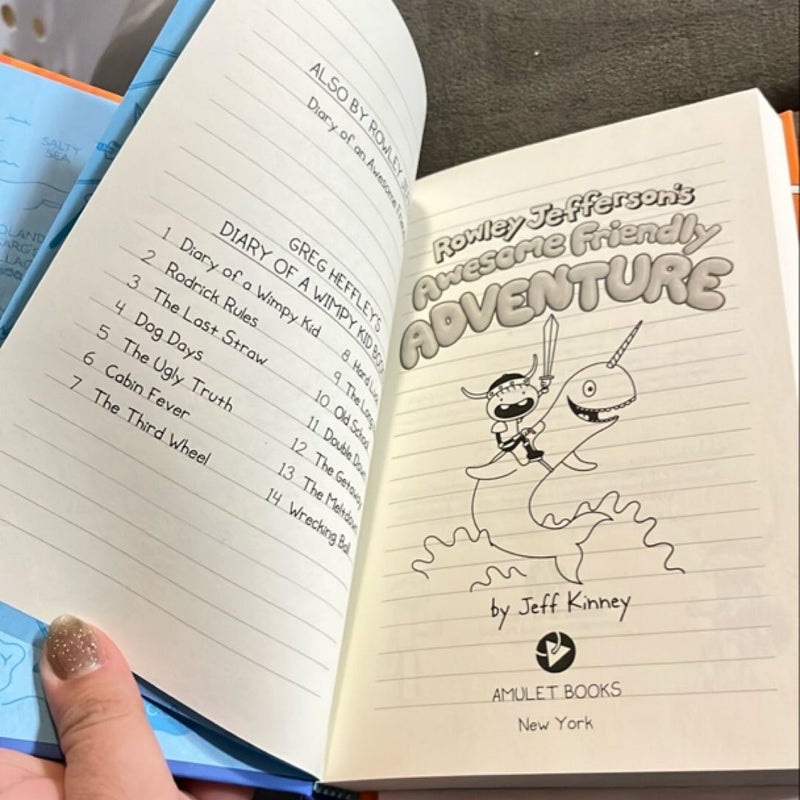 SALTY
SEA
ALSO BY ROWLEY
Diary of an Awesome
GREG HEFFLEY'S
DIARY OF A WIMPY KID
1 Diary of a Wimpy Kid
2 Rodrick Rules
3 The Last Straw
4 Dog Days
5 The Ugly Truth
6 Cabin Fever
7 The Third Wheel
8 Hard
9 The Long
10 Old School
11 Double Down
12 The Getaway
13 The Meltdown
14 Wrecking Ball
Rowley Jefferson's
Awesome Friendly
ADVENTURE
by Jeff Kinney
AMULET BOOKS
New York